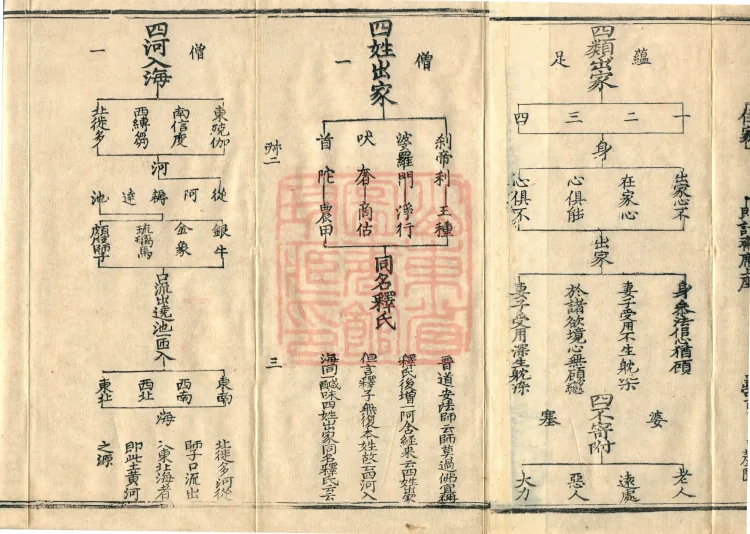 四類出家
蘊 足
一 二 三 四
身
出家心不
在家心
心俱能
心俱不
出家
身參法侶心猶顧
妻子受用不生躭染
於諸欲境心無顧戀
妻子受用深生躭染
四不寄附
婆 塞
老人
遠處
惡人
大力
四姓出家
僧 一
刹帝利 王種
婆羅門 淨行
吠奢 商估
首陀 農田
同名釋氏
晉道安法師云師莫過佛宜稱
釋氏後增一阿含經來云四姓出家
但言釋子無復本姓故云四河入
海同一鹹味四姓出家同名釋氏云云
三
四河入海
僧 一
東殑伽
南信度
西縛芻
北徙多
河
從阿耨達池
銀牛
金象
琉璃馬
頗胝師子
口流出遶池一匝入
東南
西南
西北
東北
海
北徙多河從
師子口流出
入東北海者
即此土黃河
之源